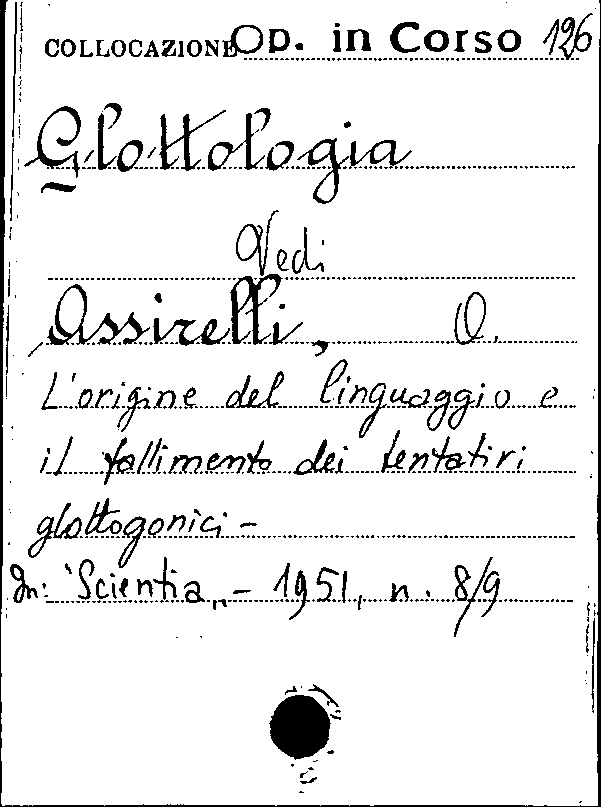 COLLOCAZIONE Op. in Corso 126
Glottologia
Vedi
Assirelli, O.
L'origine del linguaggio e
il fallimento dei tentativi
glottogonici -
In: "Scientia„ - 1951, n. 8/9